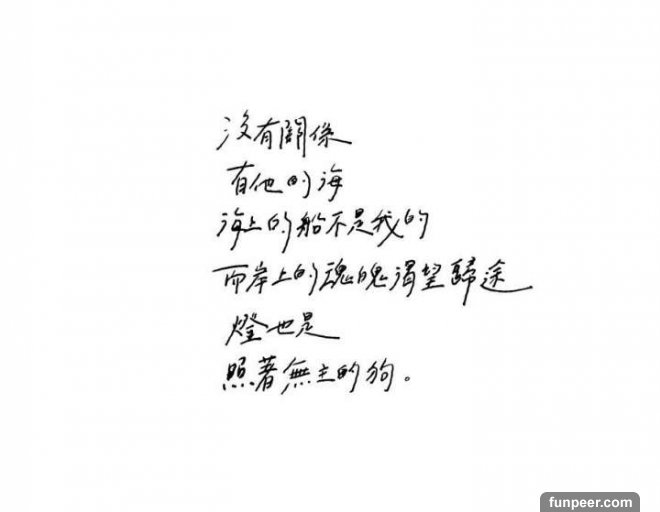 沒有關係
有他的海
海上的船不是我的
而岸上的魂魄渴望歸途
燈也是
照著無主的狗。
funpeer.com